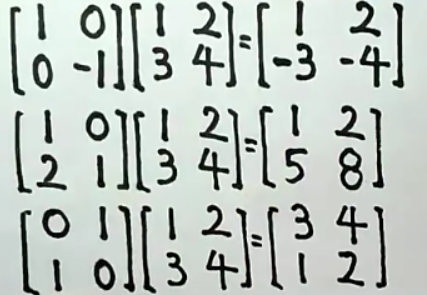 [1 0 0 -1][1 2 3 4]=[1 2 -3 -4]
[1 0 2 1][1 2 3 4]=[1 2 5 8]
[0 1 1 0][1 2 3 4]=[3 4 1 2]